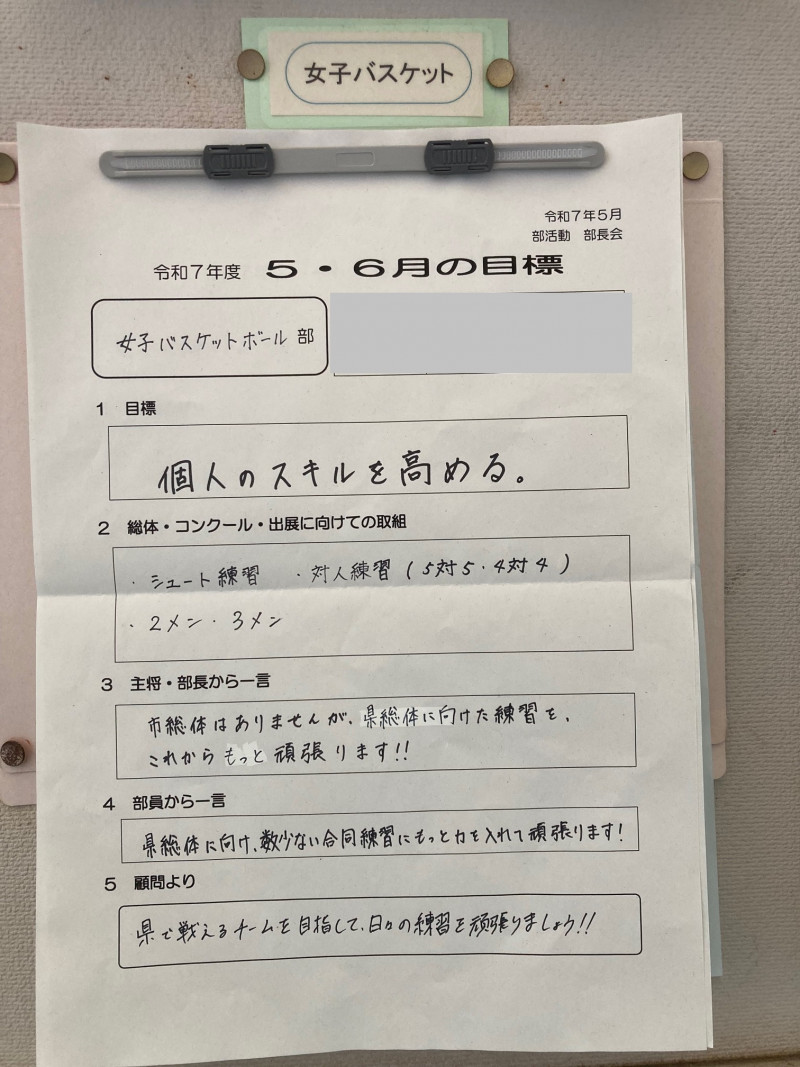 女子バスケット
令和7年5月
部活動 部長会
令和7年度 5・6月の目標
女子バスケットボール部
1 目標
個人のスキルを高める。
2 総体・コンクール・出展に向けての取組
・シュート練習 ・対人練習(5対5・4対4)
・2メン・3メン
3 主将・部長から一言
市総体はありませんが、県総体に向けた練習を、
これからもっと頑張ります!!
4 部員から一言
県総体に向け、数少ない合同練習にもっと力を入れて頑張ります!
5 顧問より
県で戦えるチームを目指して、日々の練習を頑張りましょう!!